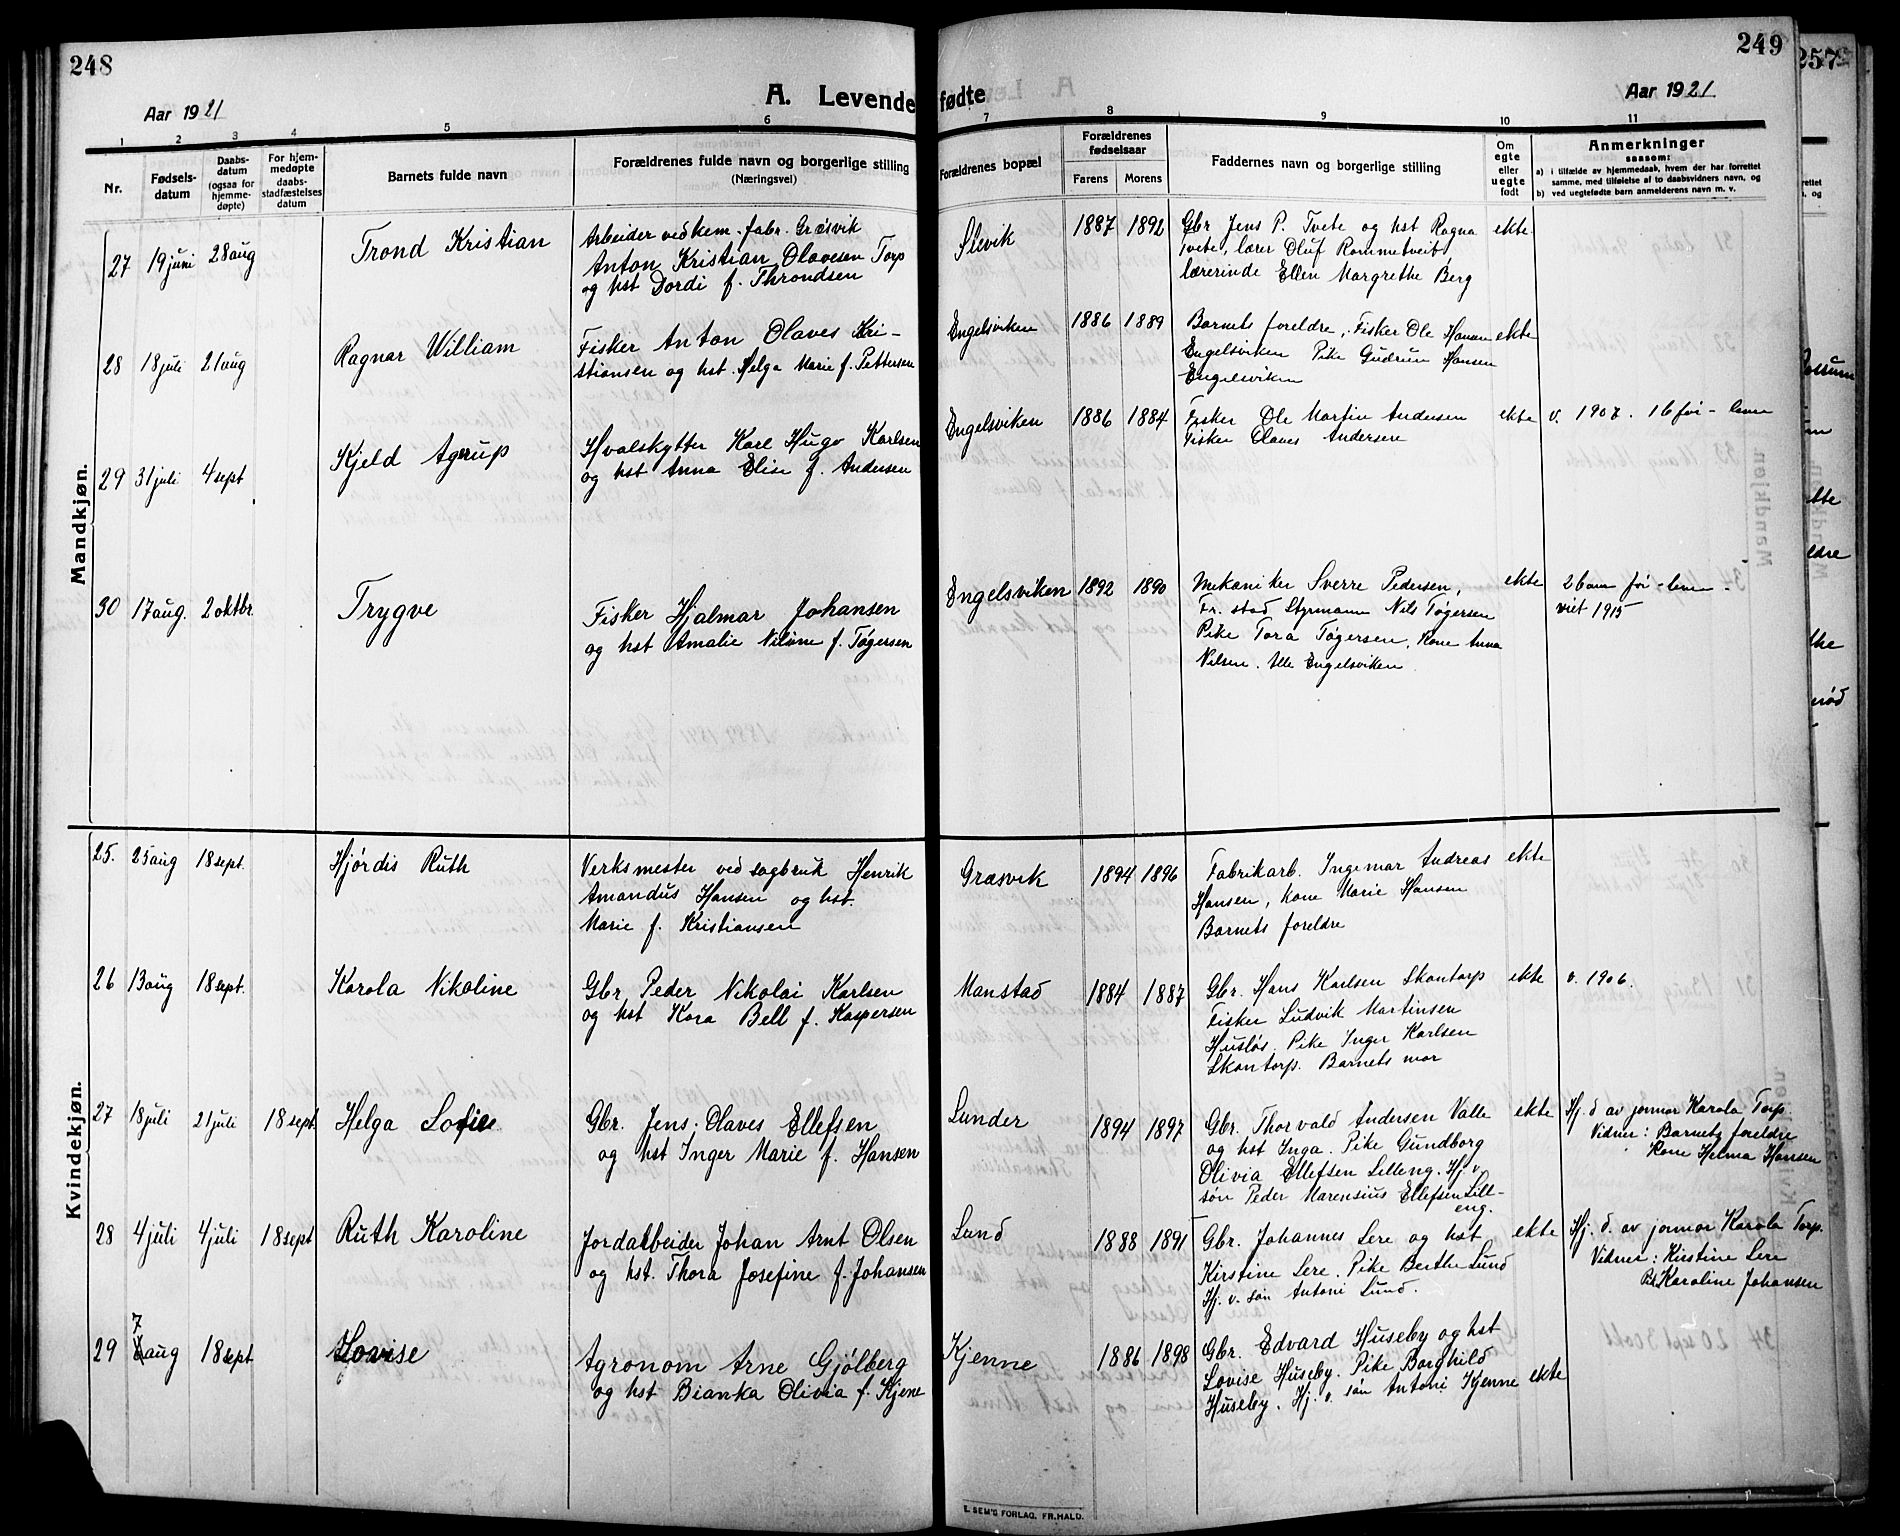 248
249
257
Aar 1921
A. Levende fødte
Aar 1921
1 2 3 4 5 6 7 8 9 10 11
Nr.
Fødsels-
datum
Daabs-
datum
(ogsaa for
hjemme-
døpte)
For hjem-
medøpte
daabs-
stadfæstelses
datum
Barnets fulde navn
Forældrenes fulde navn og borgerlige stilling
(Næringsvei)
Forældrenes bopæl
Forældrenes
fødselsaar
Farens Morens
Faddernes navn og borgerlige stilling
Om
egte
eller
uegte
født
Anmerkninger
saasom:
a) i tilfælde av hjemmedaab, hvem der har forrettet
samme, med tilføielse af to daabsvidners navn, og
b) ved uegtefødte barn anmelderens navn m. v.
Mandkjøn.
27 19 juni 28 aug
Trond Kristian
Arbeider ved kem. fabr. Græsvik
Anton Kristian Olavesen Torp
og hst Dordi f. Throndsen
Slevik
1887 1892
Gbr Jens P. Tvete og hst Ragna
Tvete, lærer Oluf Rommetveit,
lærerinde Ellen Margrethe Berg
ekte
28 18 juli 21 aug
Ragnar William
Fisker Anton Olaves Kri-
stiansen og hst. Helga Marie f. Pettersen
Engelsviken
1886 1889
Barnets foreldre, Fisker Ole Hansen
Engelsviken Pike Gudrun Hansen
Engelsviken
ekte
29 31 juli 4 sept
Kjeld Agerup
Hvalskytter Karl Hugo Karlsen
og hst Anna Elise f. Andersen
Engelsviken
1886 1884
Fisker Ole Martin Andersen
Fisker Olaves Andersen
ekte
v. 1907. 1 b før - lever
30 17 aug. 2 oktbr
Trygve
Fisker Hjalmar Johansen
og hst Amalie Nilsine f. Tøgersen
Engelsviken
1892 1890
Mekaniker Sverre Pedersen,
Fr. stad Styrmann Nils Tøgersen
Pike Tora Tøgersen, Kone Anna
Nilsen. Alle Engelsviken
ekte
2 barn før - lever.
viet 1915
Kvindekjøn.
25. 25 aug 18 sept.
Hjørdis Ruth
Verksmester ved sagbruk Henrik
Amandus Hansen og hst.
Marie f. Kristiansen
Græsvik
1894 1896
Fabrikarb. Ingemar Andreas
Hansen, kone Marie Hansen
Barnets foreldre
ekte
26 13 aug 18 sept.
Karola Nikoline
Gbr Peder Nikolai Karlsen
og hst Kara Bell f. Kaspersen
Manstad
1884 1887
Gbr. Hans Karlsen Skontorp
Fisker Ludvik Martinsen
Husløs. Pike Inger Karlsen
Skontorp. Barnets mor
ekte
v. 1906.
27 18 juli 21 juli 18 sept
Helga Sofie
Gbr. Jens Olaves Ellefsen
og hst Inger Marie f. Hansen
Lunder
1894 1897
Gbr. Thorvald Andersen Valle
og hst Inga. Pike Gundborg
Olivia Ellefsen Lilleng. Hj. v.
søn Peder Marensius Ellefsen Lill-
eng.
ekte
Hj. d av jormor Karola Torp.
Vidner: Barnets foreldre
Kone Helma Hansen
28 4 juli 4 juli 18 sept
Ruth Karoline
Jordarbeider Johan Arnt Olsen
og hst. Thora Josefine f. Johansen
Lund
1888 1891
Gbr. Johannes Lere og hst
Kirstine Lere. Pike Berthe Lund
Hj. v. søn Antoni Lund.
ekte
Hj. d. av jormor Karola Torp.
Vidner: Kirstine Lere
Karoline Johansen
29 7 aug 18 sept
Lovise
Agronom Arne Gjølberg
og hst Bianka Olivia f. Kjene
Kjenne
1886 1898
Gbr. Edvard Huseby og hst
Lovise Huseby. Pike Borghild
Huseby. Hj. v. søn Antoni Kjenne
ekte
E. SEM'S FORLAG, FR.HALD.